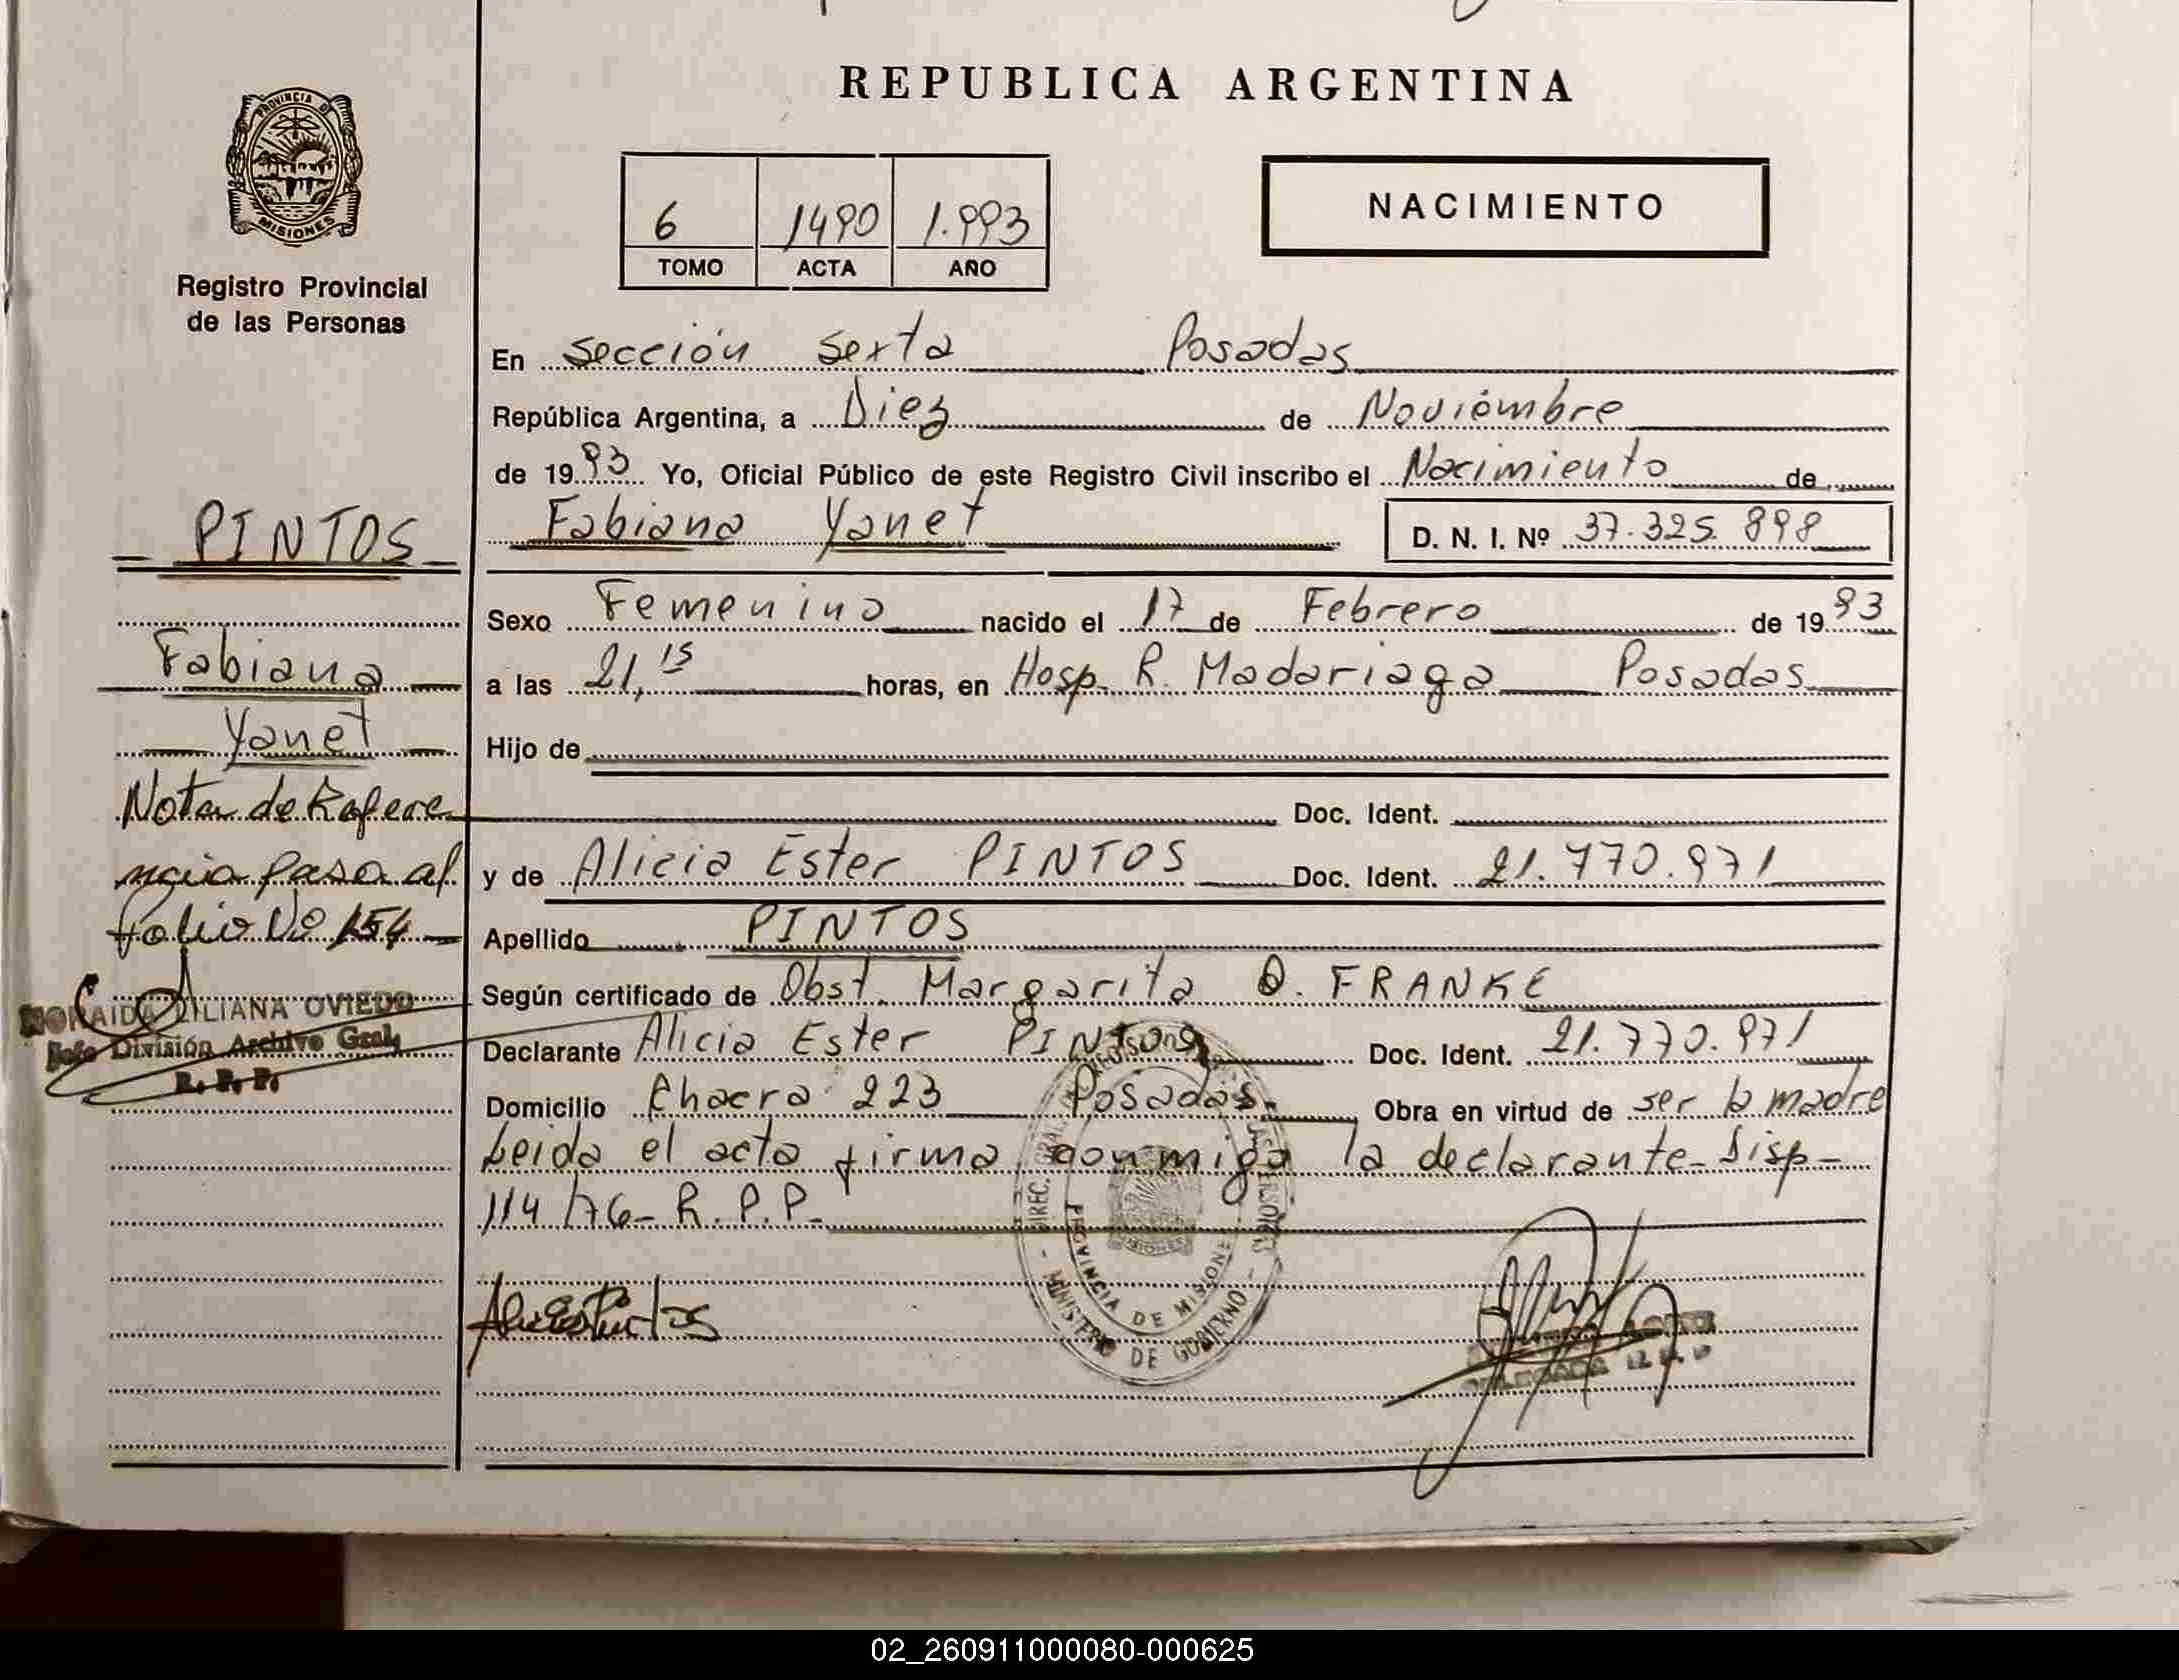 REPUBLICA ARGENTINA
PROVINCIA DE
MISIONES
Registro Provincial
de las Personas
NACIMIENTO
6 1490 1.993
TOMO ACTA AÑO
En Sección Sexta Posadas
República Argentina, a Diez de Noviembre
de 1993 Yo, Oficial Público de este Registro Civil inscribo el Nacimiento de
Fabiana Yanet D. N. I. Nº 37.325.898
Sexo Femenino nacido el 17 de Febrero de 1993
a las 21,15 horas, en Hosp. R. Madariaga Posadas
Hijo de
Doc. Ident.
y de Alicia Ester PINTOS Doc. Ident. 21.770.971
Apellido PINTOS
Según certificado de Obst. Margarita O. FRANKE
Declarante Alicia Ester PINTOS Doc. Ident. 21.770.971
Domicilio Chacra 223 Posadas Obra en virtud de ser la madre
Leida el acta firma conmigo la declarante- Disp-
114/76- R.P.P.-
PINTOS
Fabiana
Yanet
Nota de Refere
ncia pasa al
folio Nº 154
LILIANA OVIEDO
Jefe División Archivo Gral.
R. P. P.
PROVINCIA DE MISIONES
MINISTERIO DE GOBIERNO
02_260911000080-000625